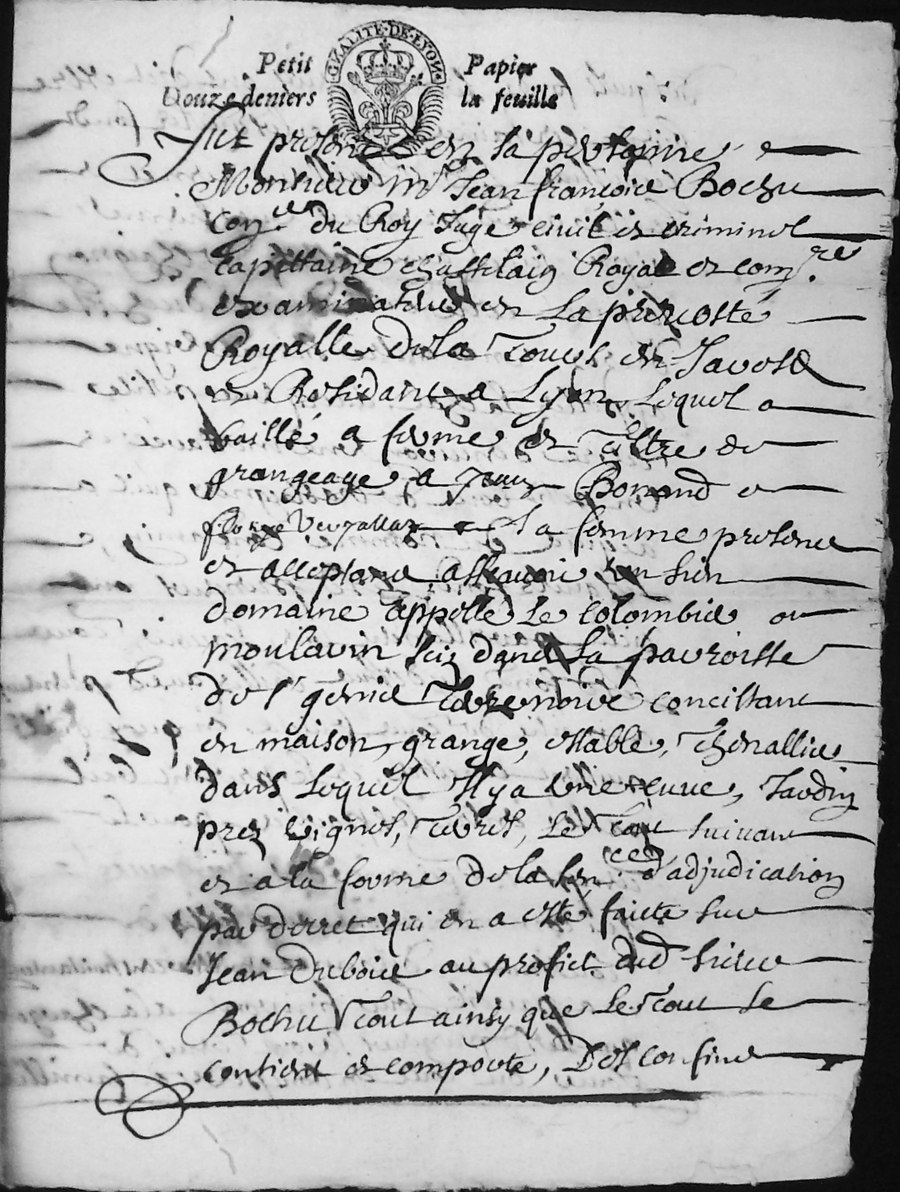 GNALITE·DE·LYON
Petit Papier
Douze deniers la feuille
Fut present en sa personne
Monsieur mr Jean françois Bochu
coner du Roy Juge civil et criminel
capittaine chastelain Royal et comre
examinateur en La prevosté
Royalle de la Tour en Javost
et Residant a Lyon Lequel a
baillé a ferme et tiltre de
grangeage a Bonand et
sa femme presents
et acceptans assavoir un sien
domaine appellé Le colombier ou
moulavin sciz dans La parroisse
de st genis Terrenoire concistant
en maison, grange, estable, Thenallier
dans Lequel Il y a une cuve, Jardin
prez vignes, terres, Le tout suivant
et a la forme de la sence d'adjudication
par decret qui en a esté faicte sur
Jean Duboix au profict dud sieur
Bochu tout ainsy que Le tout se
contient et comporte, Des confins